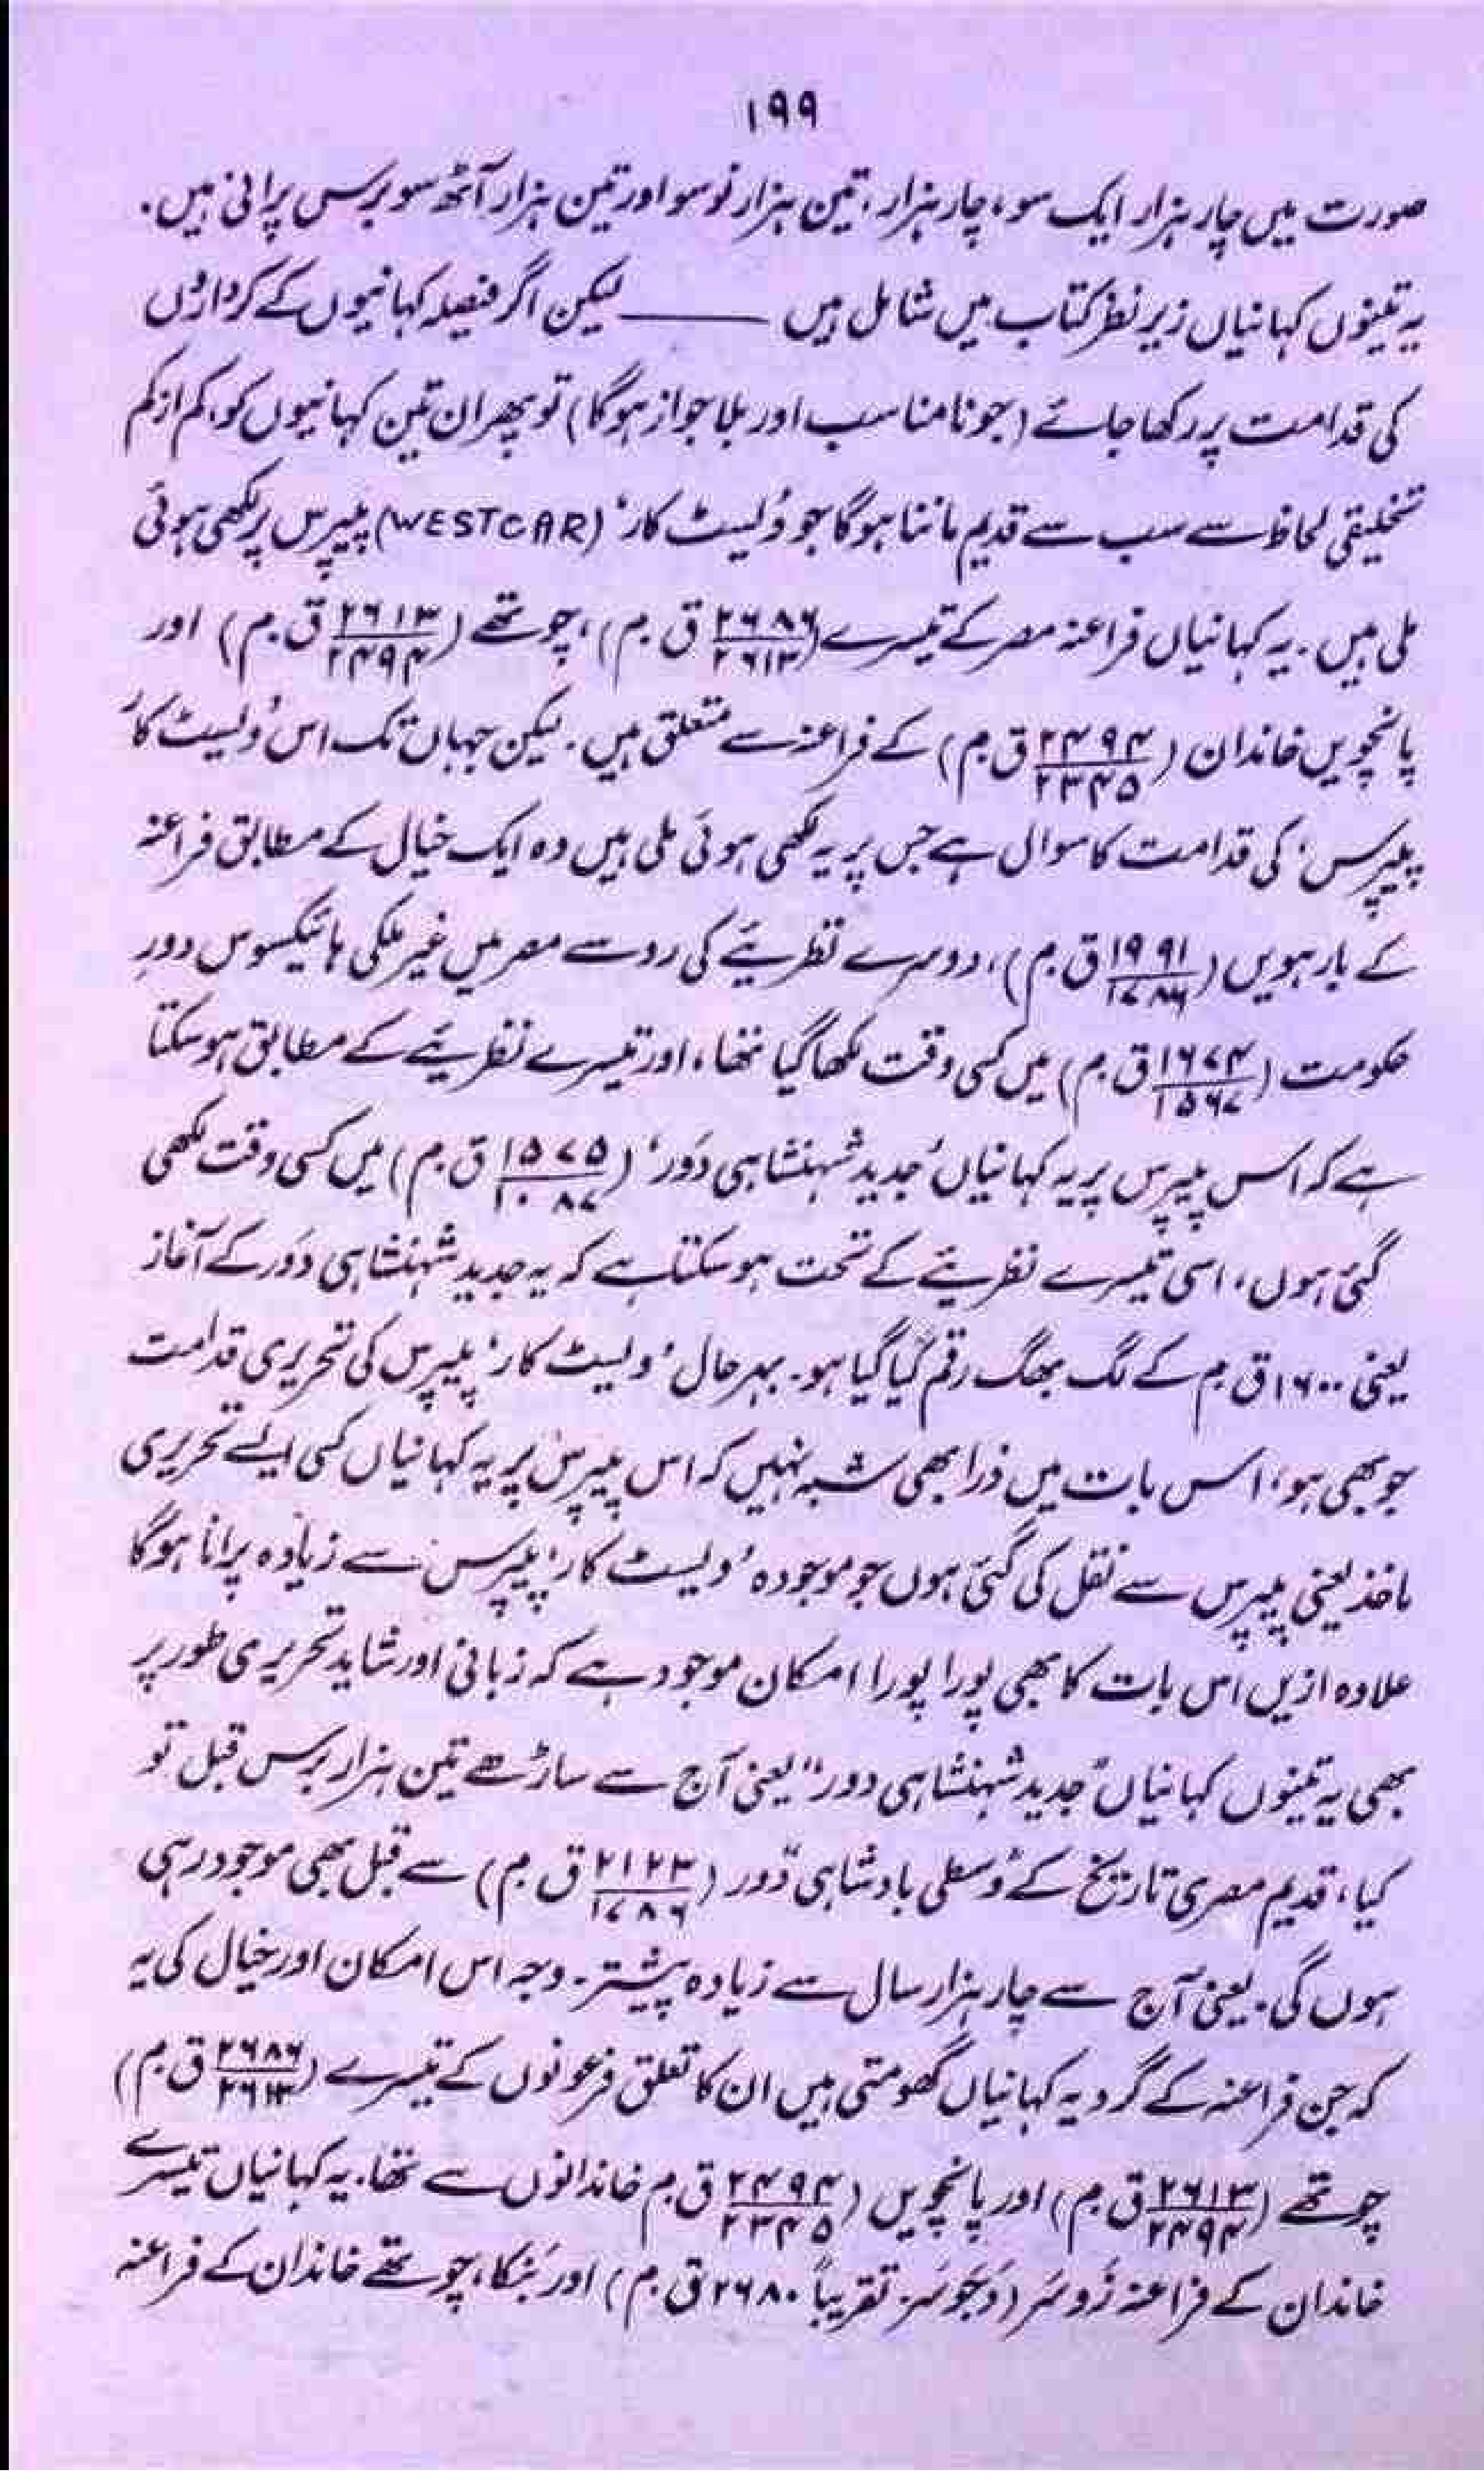 ۱۹۹
صورت میں چار ہزار ایک سو، چار ہزار، تین ہزار نو سو اور تین ہزار آٹھ سو برس پرانی ہیں.
یہ تینوں کہانیاں زیرِ نظر کتاب میں شامل ہیں ——— لیکن اگر فیصلہ کہانیوں کے کرداروں
کی قدامت پر رکھا جائے (جو نامناسب اور بلا جواز ہوگا) تو پھر ان تین کہانیوں کو، کم از کم
تخلیقی لحاظ سے سب سے قدیم ماننا ہوگا جو 'ویسٹ کار' (WESTCAR) پیپرس پر لکھی ہوئی
ملی ہیں. یہ کہانیاں فراعنہ مصر کے تیسرے (۲۶۸۶/۲۶۱۳ ق.م)، چوتھے (۲۶۱۳/۲۴۹۴ ق.م) اور
پانچویں خاندان (۲۴۹۴/۲۳۴۵ ق.م) کے فراعنہ سے متعلق ہیں. لیکن جہاں تک اس 'ویسٹ کار'
پیپرس' کی قدامت کا سوال ہے جس پر یہ لکھی ہوئی ملی ہیں وہ ایک خیال کے مطابق فراعنہ
کے بارہویں (۱۹۹۱/۱۷۸۶ ق.م)، دوسرے نظریئے کی رو سے مصر میں غیر ملکی ہائیکسوس دورِ
حکومت (۱۶۷۴/۱۵۶۷ ق.م) میں کسی وقت لکھا گیا تھا، اور تیسرے نظریئے کے مطابق ہوسکتا
ہے کہ اس پیپرس پر یہ کہانیاں 'جدید شہنشاہی دَور' (۱۵۷۵/۱۰۸۷ ق.م) میں کسی وقت لکھی
گئی ہوں، اسی تیسرے نظریئے کے تحت ہوسکتا ہے کہ یہ جدید شہنشاہی دَور کے آغاز
یعنی ۱۶۰۰ ق.م کے لگ بھگ رقم کیا گیا ہو. بہرحال 'ویسٹ کار' پیپرس کی تحریری قدامت
جو بھی ہو، اس بات میں ذرا بھی شبہ نہیں کہ اس پیپرس پر یہ کہانیاں کسی ایسے تحریری
ماخذ یعنی پیپرس سے نقل کی گئی ہوں جو موجودہ 'ویسٹ کار' پیپرس سے زیادہ پرانا ہوگا
علاوہ ازیں اس بات کا بھی پورا پورا امکان موجود ہے کہ زبانی اور شاید تحریری طور پر
بھی یہ تینوں کہانیاں "جدید شہنشاہی دور" یعنی آج سے ساڑھے تین ہزار برس قبل تو
کیا، قدیم مصری تاریخ کے "وسطی بادشاہی دَور" (۲۱۲۳/۱۷۸۶ ق.م) سے قبل بھی موجود رہی
ہوں گی. یعنی آج سے چار ہزار سال سے زیادہ پیشتر. وجہ اس امکان اور خیال کی یہ
کہ جن فراعنہ کے گرد یہ کہانیاں گھومتی ہیں ان کا تعلق فرعونوں کے تیسرے (۲۶۸۶/۲۶۱۳ ق.م)
چوتھے (۲۶۱۳/۲۴۹۴ ق.م) اور پانچویں (۲۴۹۴/۲۳۴۵ ق.م خاندانوں سے تھا. یہ کہانیاں تیسرے
خاندان کے فراعنہ زُوسَر (دَجَوسَر. تقریباً ۲۶۸۰ ق.م) اور نبکا، چوتھے خاندان کے فراعنہ